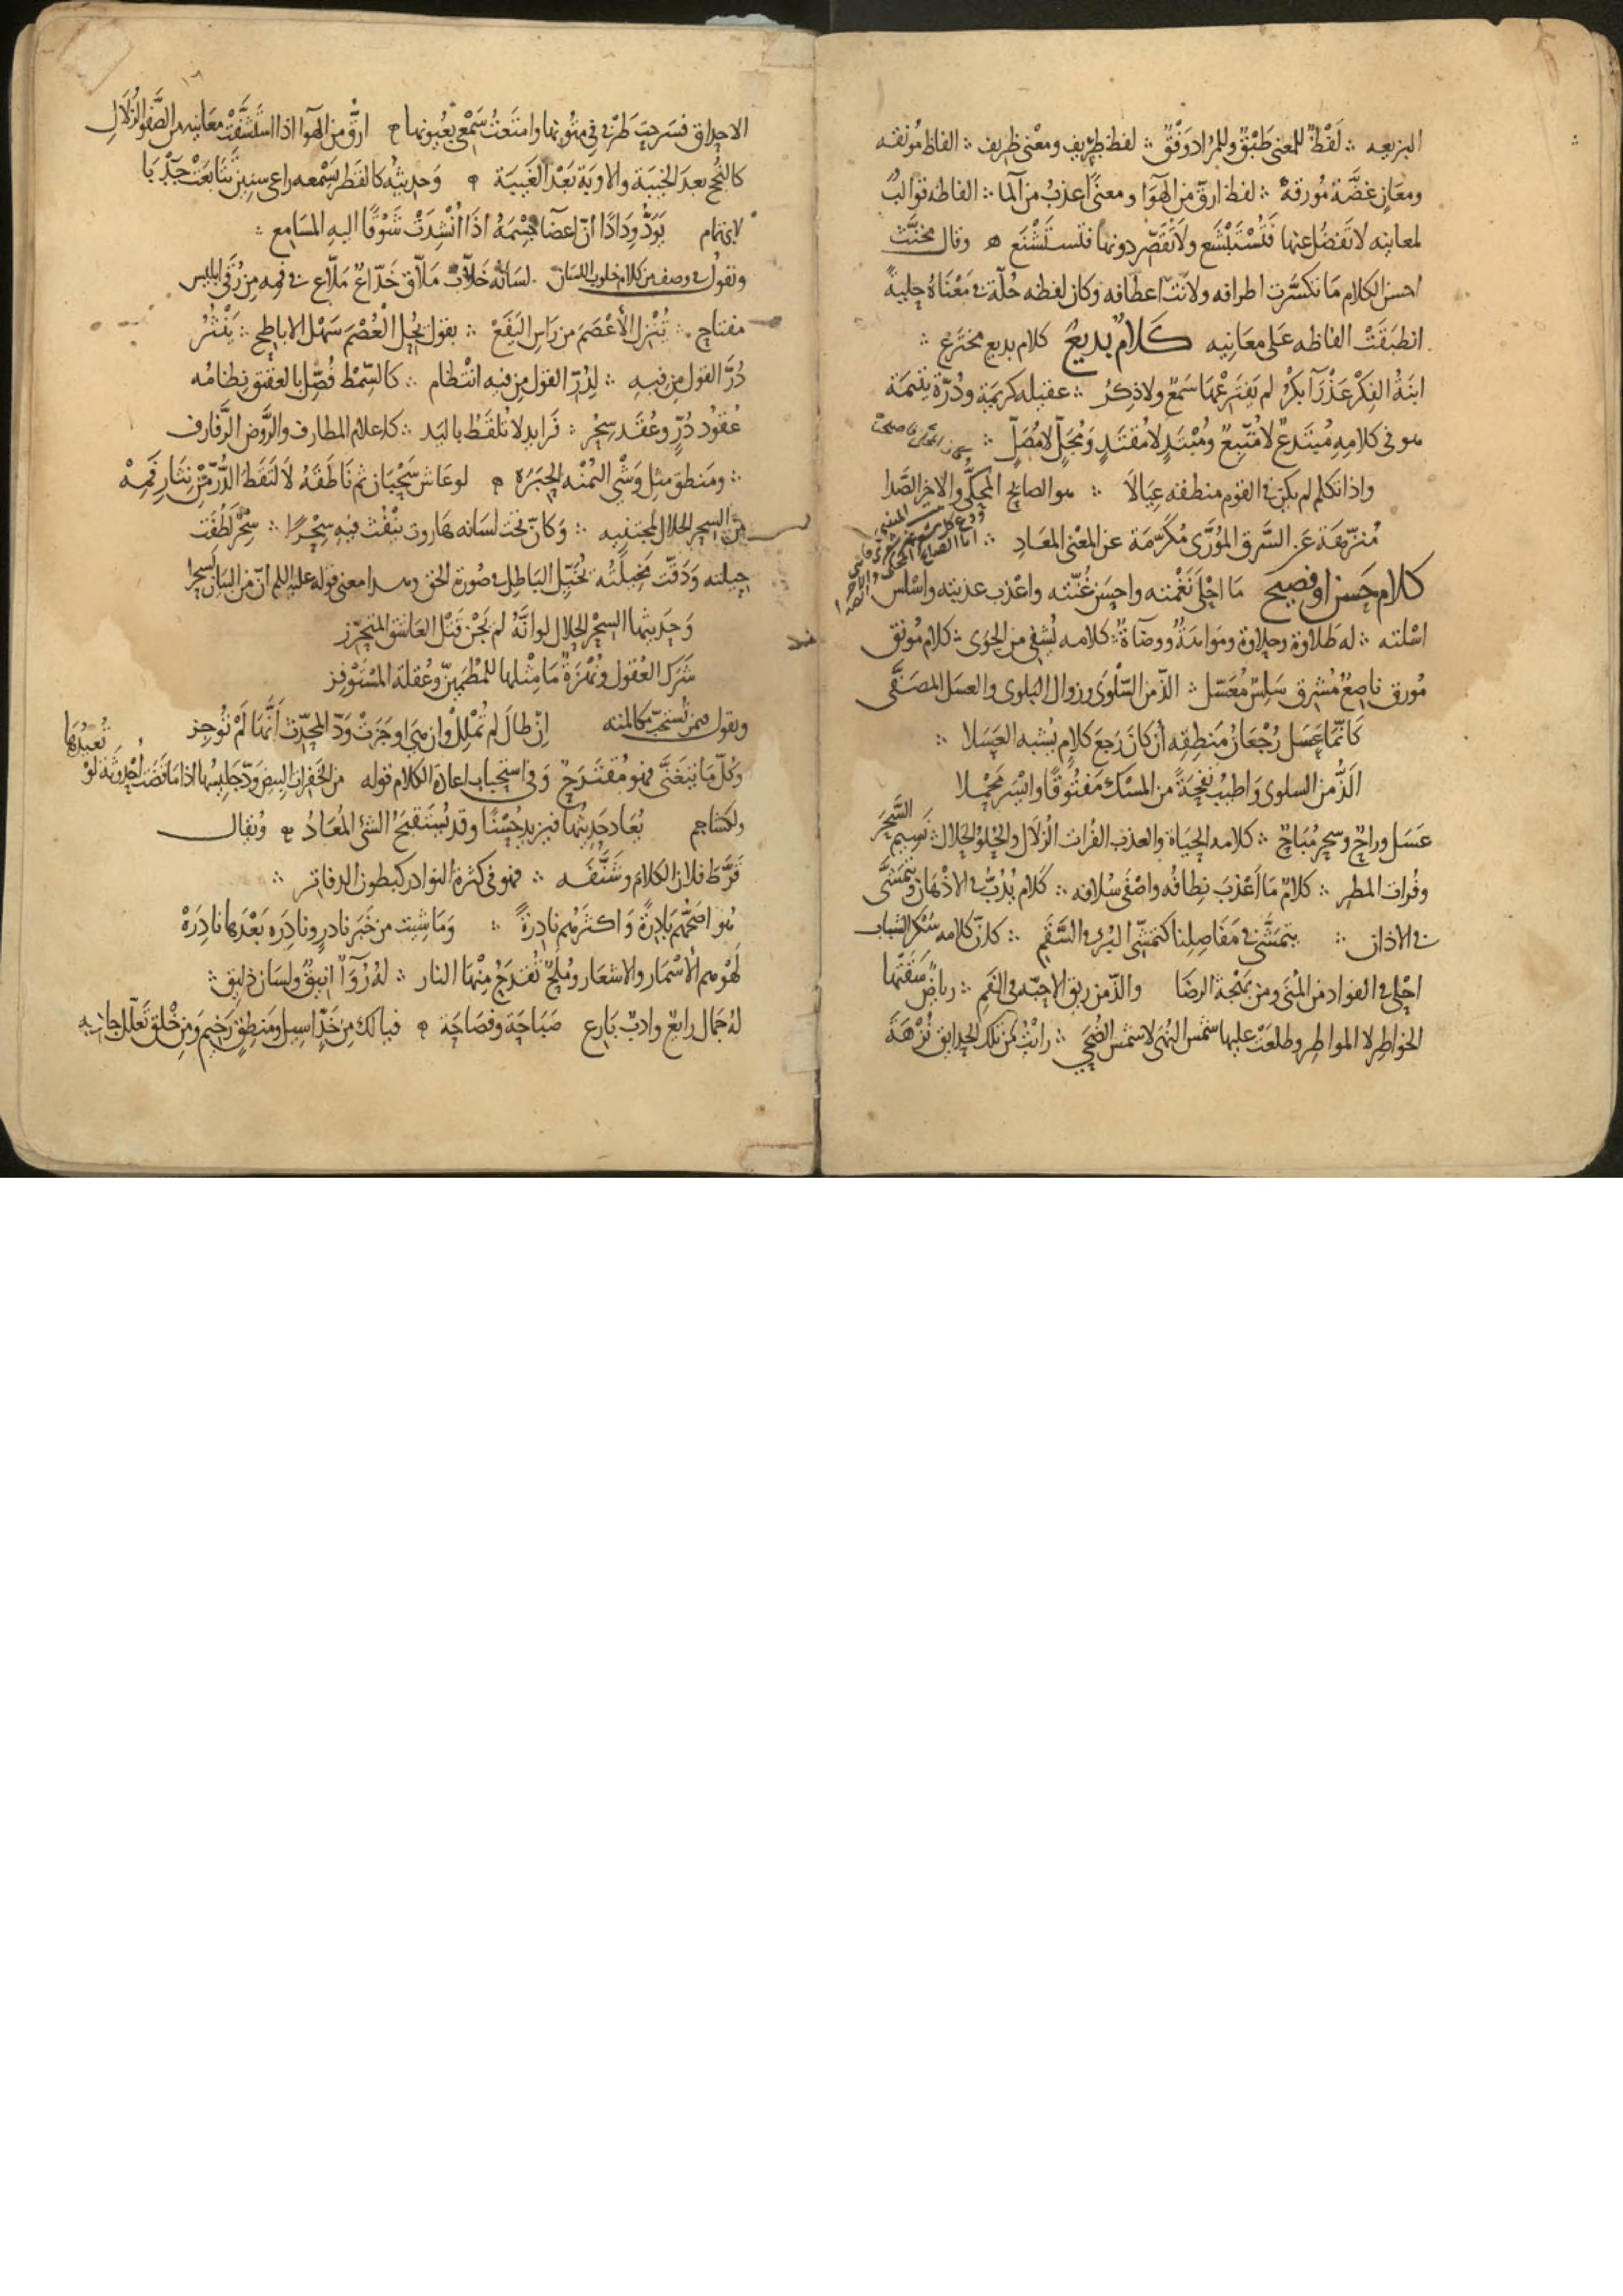 البزيعه ∴ لَفْظٌ للمعنى طَبْقٌ وللمُراد وَفْقٌ ∴ لفظ طريف ومعْنى ظريف ∴ الفاظ مُونقه
ومعَانٍ غضَّة مُورقةٌ ∴ لفظ ارقّ من الهَوَا ومعنًى اعذبُ من المآ ∴ الفاظه قوالبُ
لمعانيه لا تَفضُل عنها فَتُسْتَبْشَع ولا تَقْصّر دونها فتستَشْنَع ۞ وقال مخنَّث
احسن الكلام مَا تكسَّرت اطرافه ولانَتْ اعطافه وكان لفظه حُلّة ومَعْنَاهُ حليةً
انطبَقَتْ الفاظه عَلى معَانِيه كَلامٌ بديعٌ كلام بديع مخترَع ∴
ابنَةُ الفِكْر عَذْرَآ بِكْرٌ لم يَفتَرِعْهَا سَمْعٌ ولا ذِكرٌ ∴ عقيله كريمَة ودُرّة يتيمَة
هو في كلامِهِ مُبتَدعٌ لا مُتّبِعٌ ومُبْتَدٍ لا مُقْتَدٍ وَمُجَلٍّ لا مُصَلٍّ ∴
واذا تكلم لم يكن في القوم منطقه عِيَالَا ∴ هو الصايح المحكيُّ والاخر الصَّدا
مُنزّهَة عَن السَّرق المُوَرَّى مُكَرّمَة عن المعْنى المعَادِ ∴
كلام حَسن او فصيح مَا احْلَى نَغْمته واحسَن غُنّته واعْذب عذبته واسْلس
اسْلته ∴ له طَلاوة وحلاوة ووضآةٌ ∴ كلامه يُشفي من الجوَى ∴ كلام مُونق
مُورق ناصعٌ مُشرق سَلِسٌ مُعَسّل ∴ الذّ من السّلْوَى وزوال البلوى والعسَل المصَفَّى
كَانّمَا عسَل رُجْعَانُ مَنطِقِه اِن كانَ رَجعَ كلامٍ يُشبه العَسَلا ∴
الَذُّ من السلوى وَاطيبُ نفحَةً من المسْك مَفْتُوقًا وايْسَر مَحْمِلا
عَسَل وراحٌ وسِحر مُبَاحٌ ∴ كلامه الحيَاة والعذب الفُرات الزلَال والحُلوُ الحَلال ∴ نَسِيم السَّحَر
وفُرات المطر ∴ كلامٌ مَا اَعْذبَ نِطافُه واصْفَى سُلافه ∴ كَلام يُدِبُّ في الاذهَان وَيتَمَشَّى
في الاذان ∴ يتمَشَّى في مَفَاصِلِنا كتمَشّي البُرْء في السَّقَمِ ∴ كانّ كلامه سُكْر الشباب
احْلَى في الفواد من المُنَى ومن بَهْجَة الرِضَا والذّ من ريق الاحبّه في الفَمِ ∴ رياضٌ سَقَتْهَا
الخواطِر لا المواطِر وطلعَتْ عليها شمْس النُهَى لا شمْس الضُحَى ∴ راتْ من تلك الحدايق نُزْهَة
الاحداق فسَرحتَ طَرْفي في متُونِها وامتَعتُ سَمْعي بعُيونها ارَقّ من الهوا اذا استَشَفّتْ معَانيه من الصَّفو الزُلَالِ
كالنُجح بعدَ الخَيْبَة والاوبَة بَعْد الغَيبَة وَحديثُه كالقَطر يَسْمعه راعي سنين تتَابعَتْ جَدْبَا
لابي تمام يَوَدُّ وِدَادًا انّ اعضآ جسْمهُ اذَا اُنْشِدَتْ شَوْقًا اليهِ المسَامع ∴
ونقولُ في وصف من كلام خلوب اللسان لسَانُه خَلاّبٌ مَلاّق خَدّاعٌ مَلاّع في فمِه مِن رُقَى ابليس
مفتاح ∴ تُنْزِل الاَعْصَمَ من رَاسِ اليَفَعْ ∴ بقول يُحِلّ العُصْمَ سَهْل الاباطح ∴ يَنْثُرُ
دُرَّ القول مِن فيه ∴ لِدُرّ القوْل مِن فيه انتظام ∴ كالسّمْط فُصّل بالعَقيق نظامُه
عُقُودُ دُرٍّ وعُقَد سِحْر ∴ فَرايد لا تُلقَطُ باليَد ∴ كاعلام المطارف والرَّوض الرَّفارف
∴ ومَنطق مثل وَشْي اليُمْنه الحِبَرَه لو عَاش سَحْبَان ثم نَاطَقَهُ لالتَقَط الدُّرّ مِنْ نِثَارِ فَمِهْ
من السحر الحلال لمجتَنيه ∴ وَكانّ تحَت لسَانه هَاروت ينْفُث فيه سِحْرًا ∴ سِحْر لَطُفَت
حيلته وَدَقّت مخيلَتُه يُخَيّل البَاطِل في صُورة الحق وهذا معنى قوله عليه السلم انّ من البيَان لَسحرا
وَحَديثها السِحْر الحلال لو انّهُ لم يَجْن قَتْل العَاشق المتحرّز
شَرَك العُقول ونُهزَةٌ مَا مِثْلها للمُطْمَئِنّ وعُقلة المسْتَوْفِز
ونقول فيمن تُستحبّ مكالمته اِنْ طالَ لم يُمْلِلْ وان هي اوجَزَتْ وَدّ المحدّث اَنّهَا لَمْ تُوجِز
وَكلّ مَا يُتغَنَّى فهو مُقترَحٌ وَفي استحباب اعادة الكلام قوله من الخَفِرات البِيض وَدّ جَليسُها اذا مَا قَضَت اُحدوثَة لَوْ تُعيدُهَا
ولكشاجم يُعَاد حَديثُها فيزيد حُسْنًا وقد يُستَقبَحُ الشئ المُعَادُ وَيُقال
قَرَّطَ فلان الكلامَ وشَنَّفَه ∴ فهو في كثرة النوادر كبطون الدفاتر ∴
هُو اصَحُّهم بَادِرةً وَاكثرهُم نادِرةً ∴ وَمَا شِيت من خَبَر نادرٍ ونادِرَه بَعْدَها نادِرَهْ
لهُ جَمال رايعٌ وادبٌ بَارع صَبَاحَة وفَصَاحَة فيالك مِن خَدٍّ اسيلٍ ومَنطِقٍ رَخيمٍ وَمِن خَلْقٍ تَعلّل جَادِبه